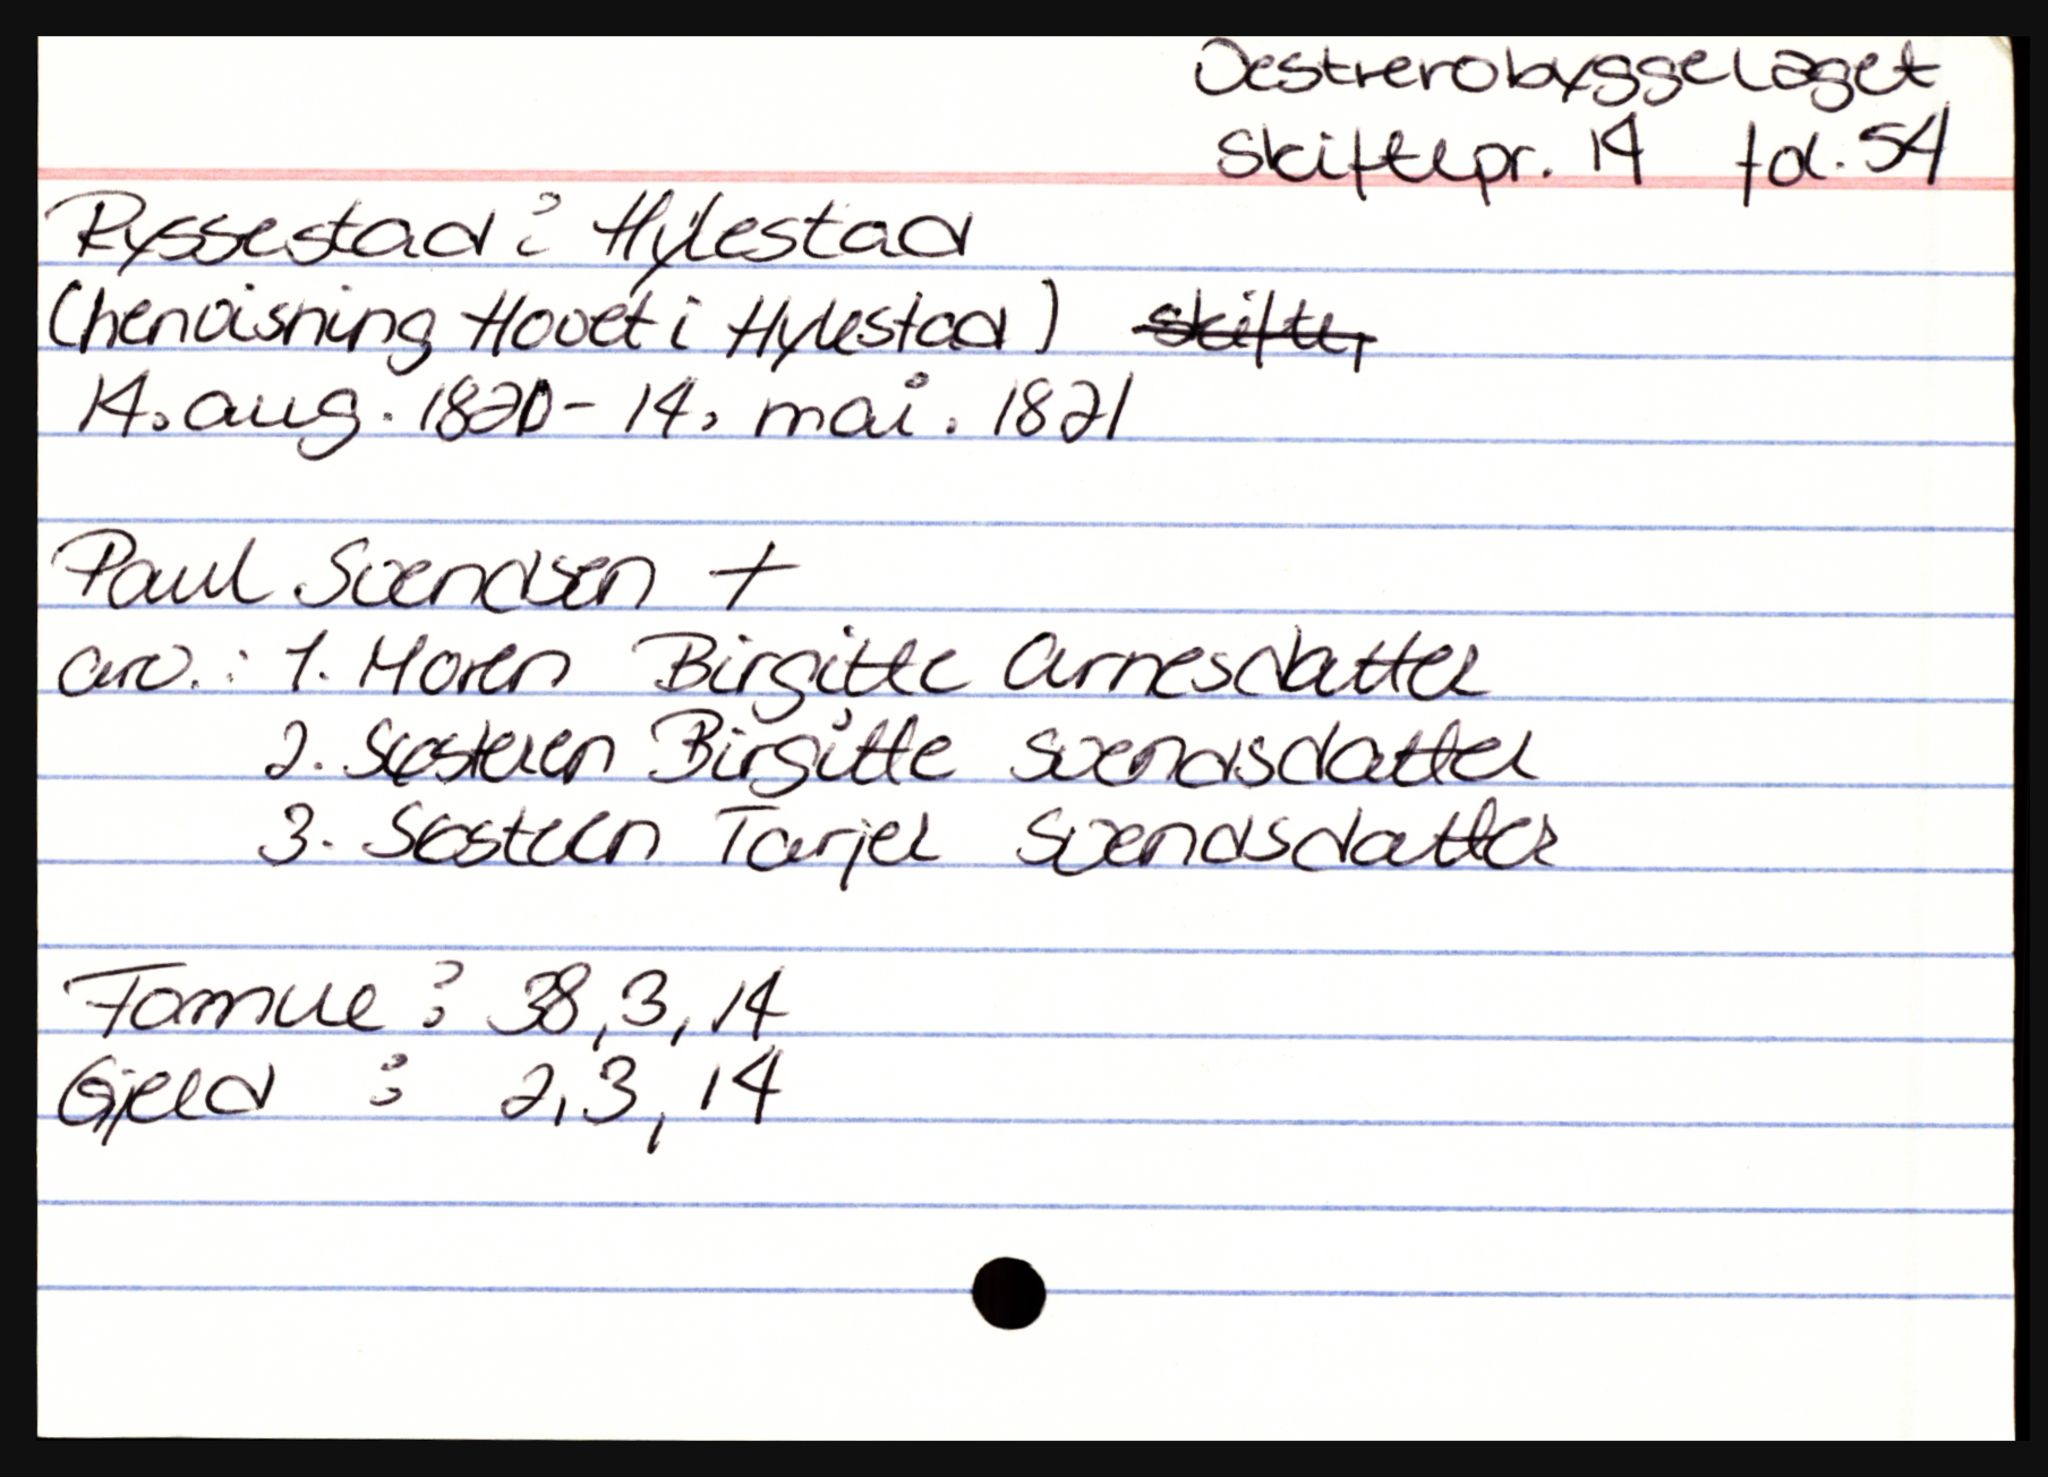 Oestrerobyggelaget
Skiftepr. 14 fol. 54
Ryssestad i Hylestad
(henvisning Hovet i Hylestad) skifte,
14. aug. 1820 - 14. mai. 1821
Paul Svendsen +
arv.: 1. Moren Birgitte Arnesdatter
2. Søsteren Birgitte Svendsdatter
3. Søsteren Tarjer Svendsdatter
Formue : 38, 3, 14
Gjeld : 2, 3, 14